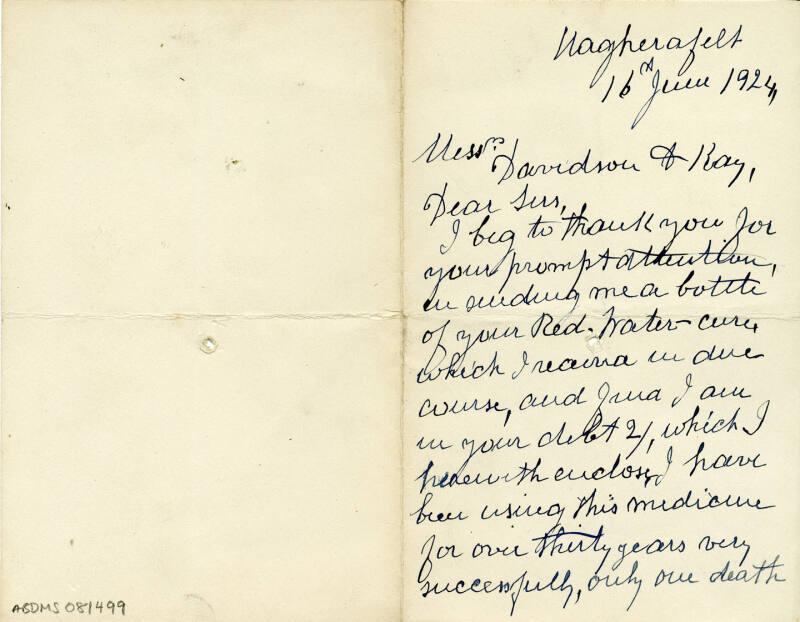 Magherafelt
16th June 1924,
Messrs Davidson & Kay,
Dear Sirs,
I beg to thank you for
your prompt attention,
in sending me a bottle
of your Red-Water-cure,
which I received in due
course, and find I am
in your debt 2/, which I
herewith enclose, I have
been using this medicine
for over thirty years very
successfully, only one death
ABDMS 081499